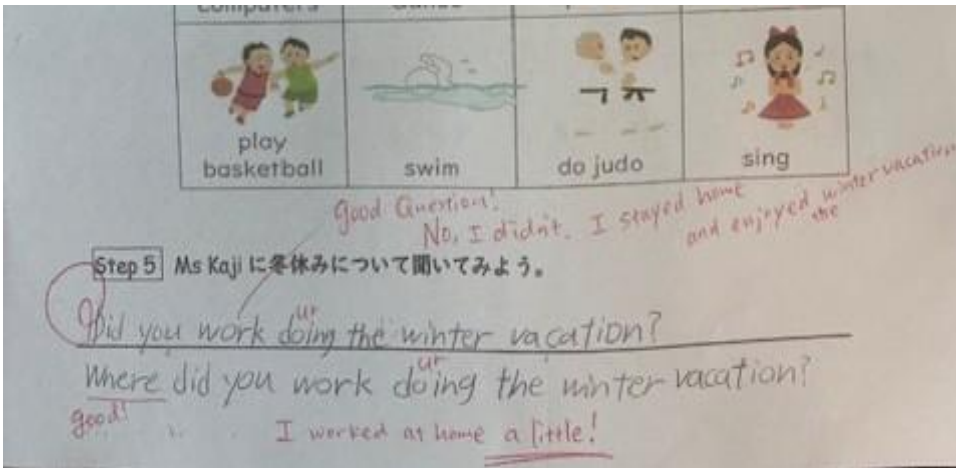 computers dance
play basketball swim do judo sing
Good Question!
No, I didn't. I stayed home
and enjoyed the winter vacation
Step 5 Ms Kaji に冬休みについて聞いてみよう。
ur
Did you work doing the winter vacation?
ur
Where did you work doing the winter vacation?
good!
I worked at home a little!